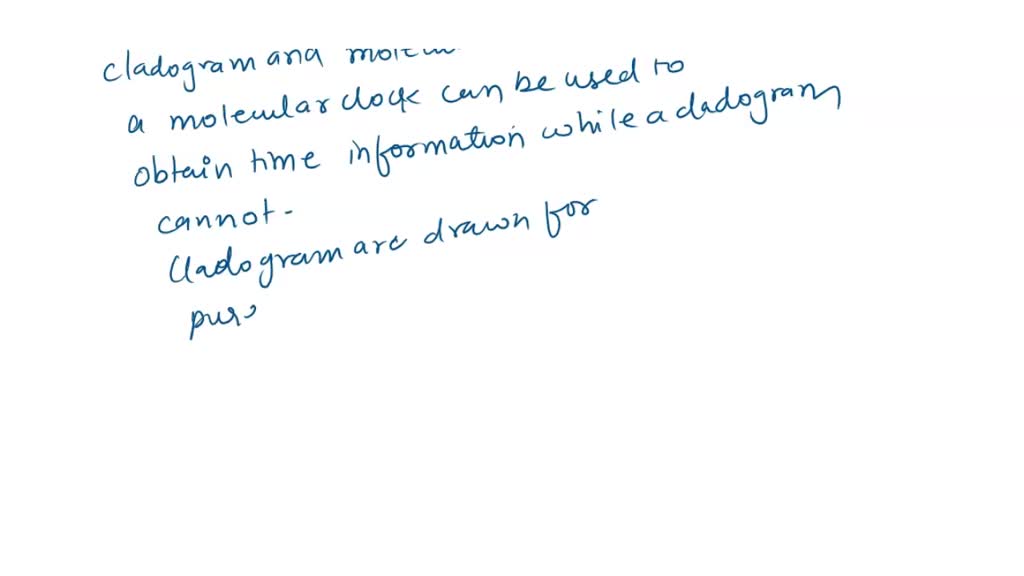 cladogram and
a molecular clock can be used to
obtain time information while a cladogram
cannot.
Cladogram are drawn for